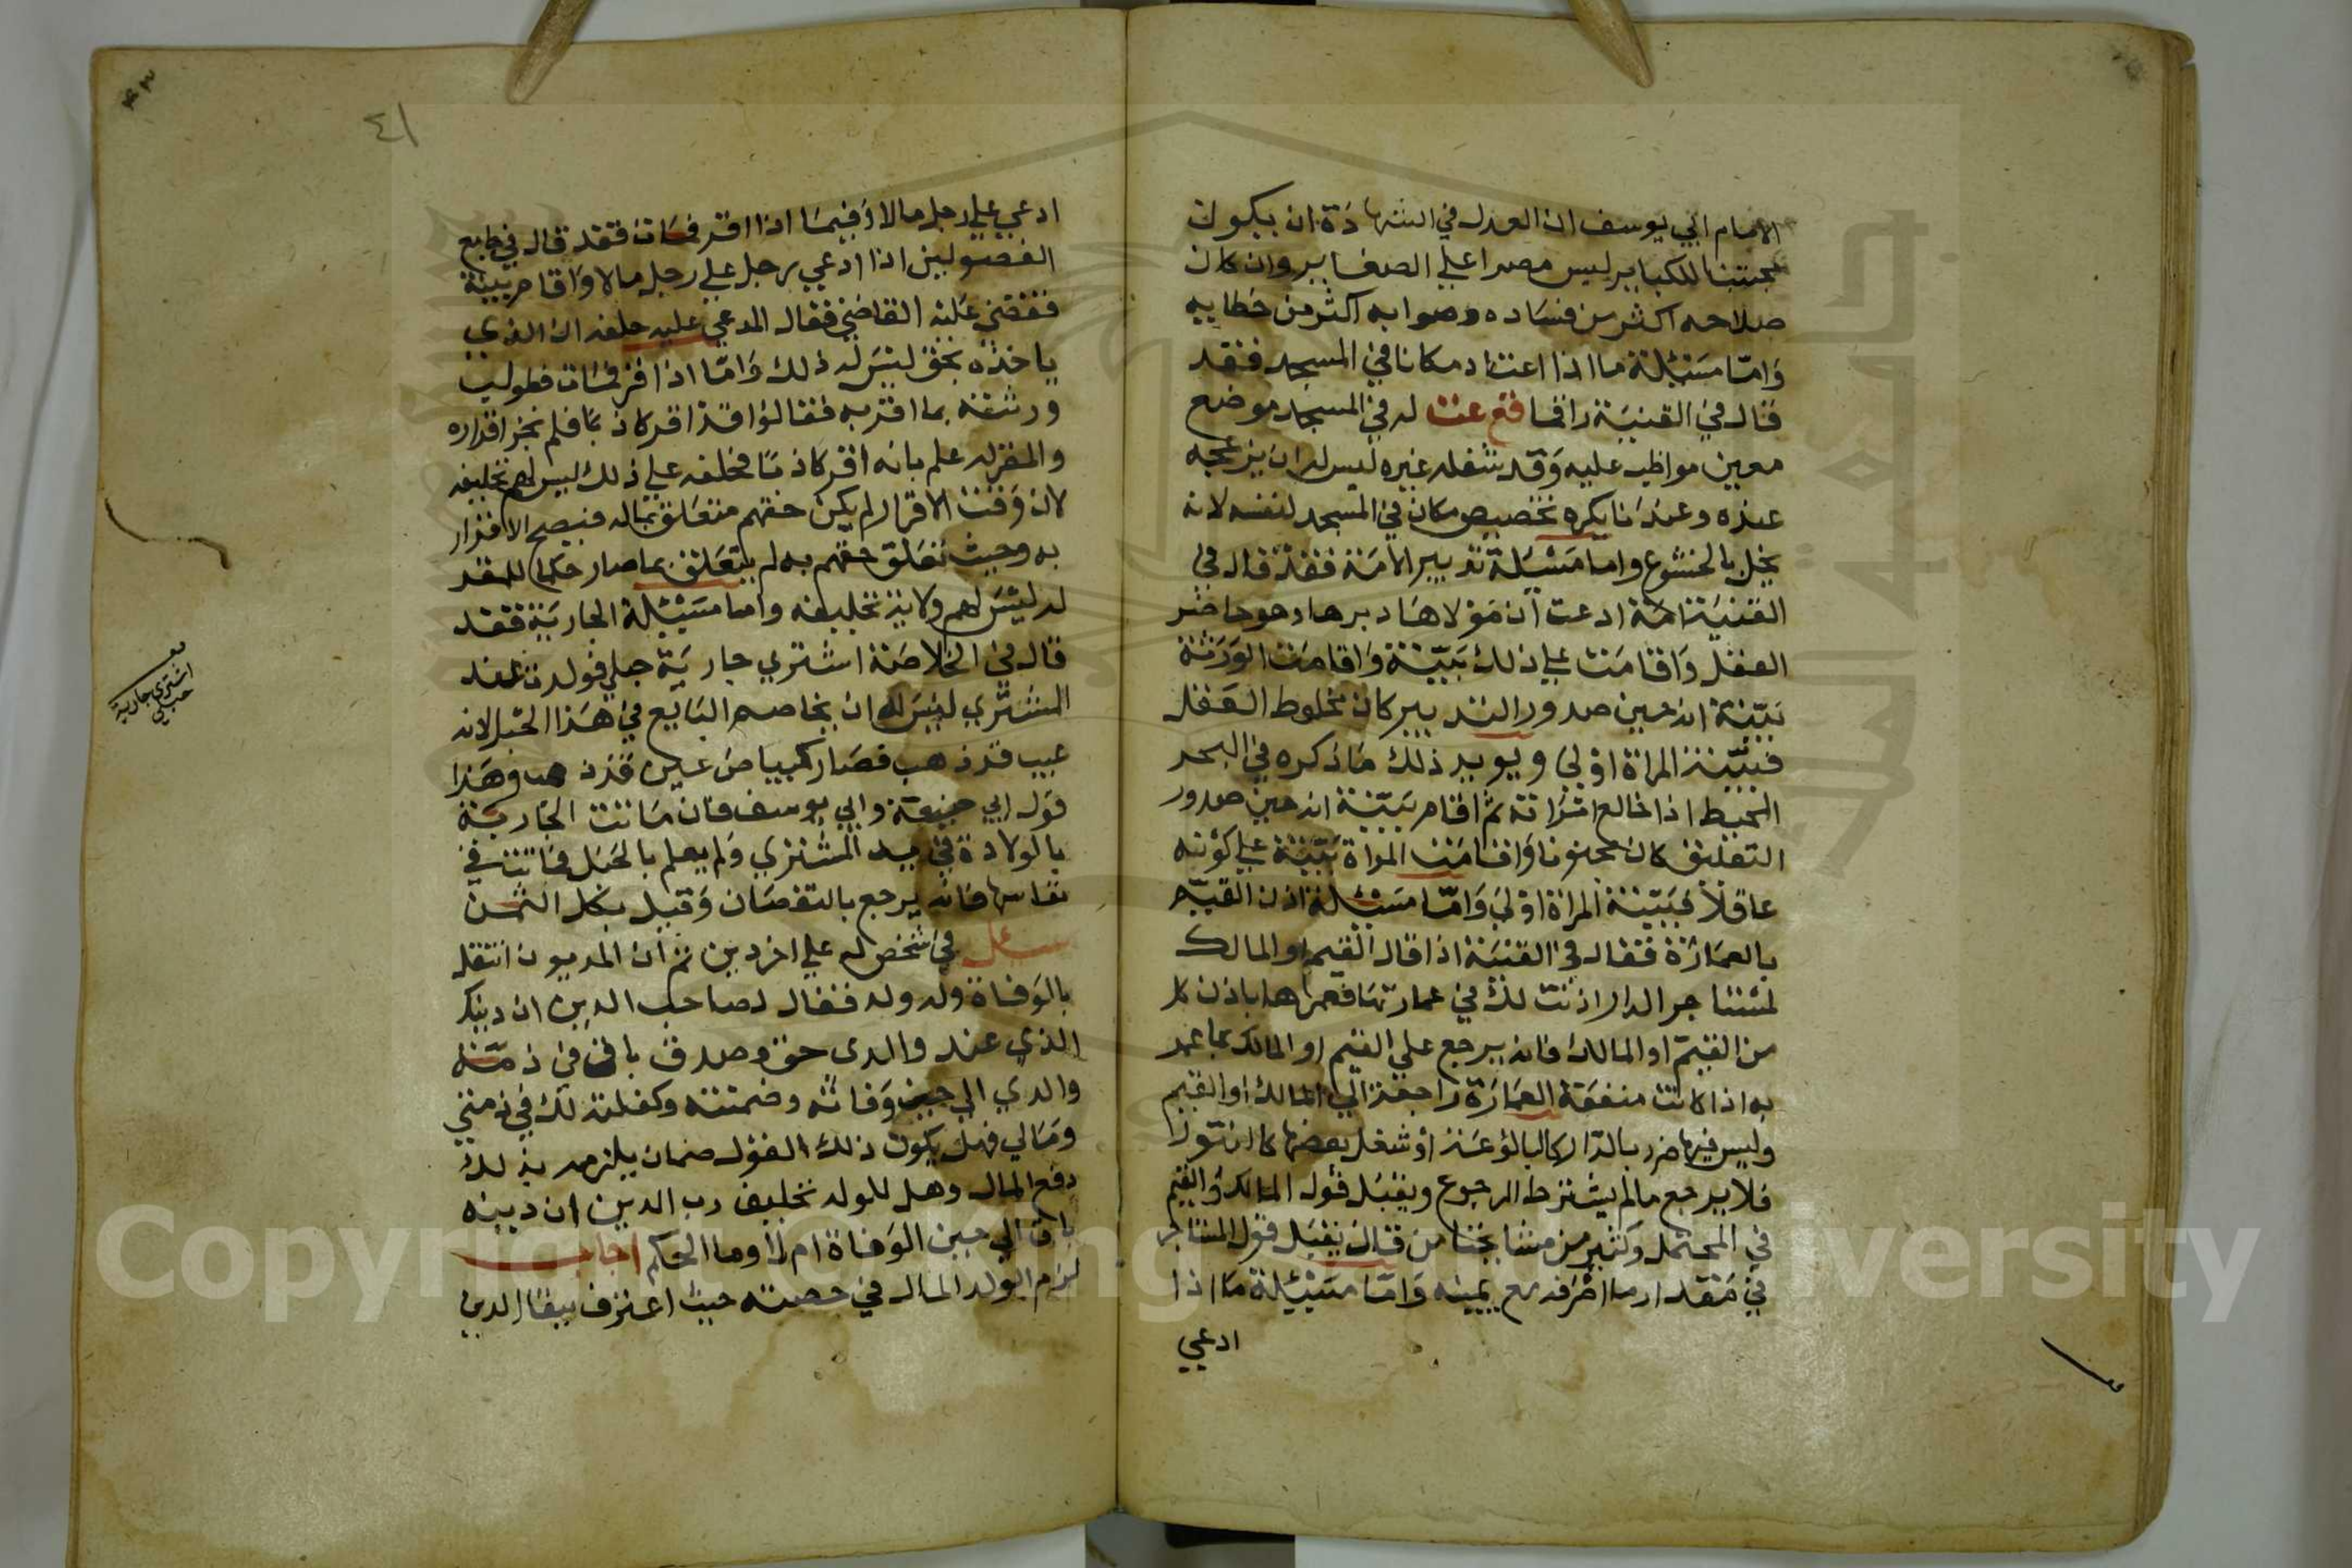 الامام ابي يوسف ان العدل في الشهادة ان يكون
مجتنبا للكباير ليس مصرا علي الصغاير وان كان
صلاحه اكثر من فساده وصوابه اكثر من خطايه
وامّا مسئلة ما اذا اعتاد مكانا في المسجد فقد
قال في القنية راقما فع عت له في المسجد موضع
معين مواظب عليه وقد شغله غيره ليس له ان يزعجه
عنده وعندنا يكره تخصيص مكان في المسجد لنفسه لانه
يخل بالخشوع واما مسئلة تدبير الامة فقد قال في
القنية امة ادعت ان مولاها دبرها وهو حاضر
العقل واقامت علي ذلك بيّنة واقامت الورثة
بيّنة انه حين صدور التدبير كان مخلوط العقل
فبيّنة المراة اولي ويويد ذلك ما ذكره في البحر
المحيط اذا خالع امراته ثم اقام بيّنة انه حين صدور
التعليق كان مجنونا واقامت المراة بيّنة علي كونه
عاقلا فبيّنة المراة اولي وامّا مسئلة اذن القيّم
بالعمارة فقال في القنية اذا قال القيم او المالك
لمستاجر الدار اذنت لك في عمارتها فعمرها باذن كل
من القيّم او المالك فانه يرجع علي القيم او المالك بما عمر
به اذا كانت منفعة العمارة راجعة الي المالك او القيم
وليس فيها ضرر بالدّار كالبالوعة او شغل بعضها كالتنور
فلا يرجع مالم يشترط الرجوع ويقبل قول المالك والقيم
في المحتمل وكثير من مشايخنا من قال يقبل قول المستاجر
في مقدار ما اصرفه مع يمينه وامّا مسئلة ما اذا
ادعي
٤١
ادعي علي رجل مالا وفيما اذا اقر فمات فقد قال في جامع
الفصولين اذا ادعي رجل علي رجل مالا واقام بيّنة
فقضي عليه القاضي فقال المدعي عليه حلفه ان الذي
ياخذه بحق ليس له ذلك وامّا اذا اقر فمات فطولب
ورثته بما اقر به فقالوا قد اقر كاذبا فلم يجز اقراره
والمقر له علم بانه اقر كاذبا فحلفه علي ذلك ليس لهم تحليفه
لان وقت الاقرار لم يكن حقهم متعلق بماله فيصح الاقرار
به وحيث تعلق حقهم به لم يتعلق بما صار حكما للمقر
له ليس لهم ولاية تحليفه واما مسئلة الجارية فقد
قال في الخلاصة اشتري جارية حبلي فولدت عند
المشتري ليس له ان يخاصم البايع في هذا الحبل لانه
عيب قد ذهب فصار كبياض عين قد ذهب وهذا
قول ابي حنيفة وابي يوسف فان ماتت الجارية
بالولادة في يد المشتري ولم يعلم بالحبل فماتت في
نفاسها فانه يرجع بالنقصان وقيل بكل الثمن
سئل في شخص له علي اخر دين ثم ان المديون انتقل
بالوفاة وله ولد فقال لصاحب الدين ان دينك
الذي عند والدي حق وصدق باقي في ذمّة
والدي الي حين وفاته وضمنته وكفلته لك في ذمتي
ومالي فهل يكون ذلك القول ضمان يلزمه بذلك
دفع المال وهل للولد تحليف رب الدين ان دينه
باق الي حين الوفاة ام لا وما الحكم اجاب
لزم الولد المال في حصته حيث اعترف ببقا الدين
اشتري جارية
حبلي